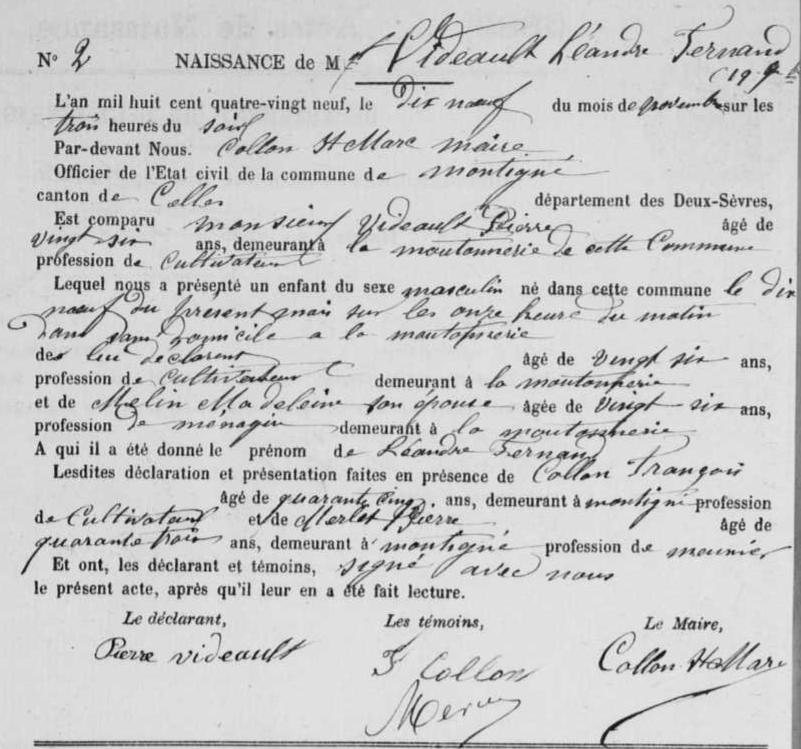 N° 2 NAISSANCE de M Videault Léandre Fernand
19 9b
L'an mil huit cent quatre-vingt neuf, le dix nœuf du mois de novembre sur les
trois heures du soir
Par-devant Nous. Collon St Marc maire
Officier de l'Etat civil de la commune de montigné
canton de Celles département des Deux-Sèvres,
Est comparu monsieur Videault Pierre âgé de
vingt six ans, demeurant à la moutonnerie de cette Commune
profession de Cultivateur
Lequel nous a présenté un enfant du sexe masculin né dans cette commune le dix
nœuf du présent mois sur les onze heure du matin
dans domicile a la moutonnerie
des lui declarent âgé de Vingt six ans,
profession de Cultivateur demeurant à la moutonnerie
et de Mélin Madeleine son épouse âgée de Vingt six ans,
profession de menagère demeurant à la moutonnerie
A qui il a été donné le prénom de Léandre Fernand
Lesdites déclaration et présentation faites en présence de Collon François
âgé de quarante cinq ans, demeurant à montigné profession
de Cultivateur et de Merlet Pierre âgé de
quarante trois ans, demeurant à montigné profession de meunier
Et ont, les déclarant et témoins, signé avec nous
le présent acte, après qu'il leur en a été fait lecture.
Le déclarant, Les témoins, Le Maire,
Pierre videault F Collon Collon St Marc